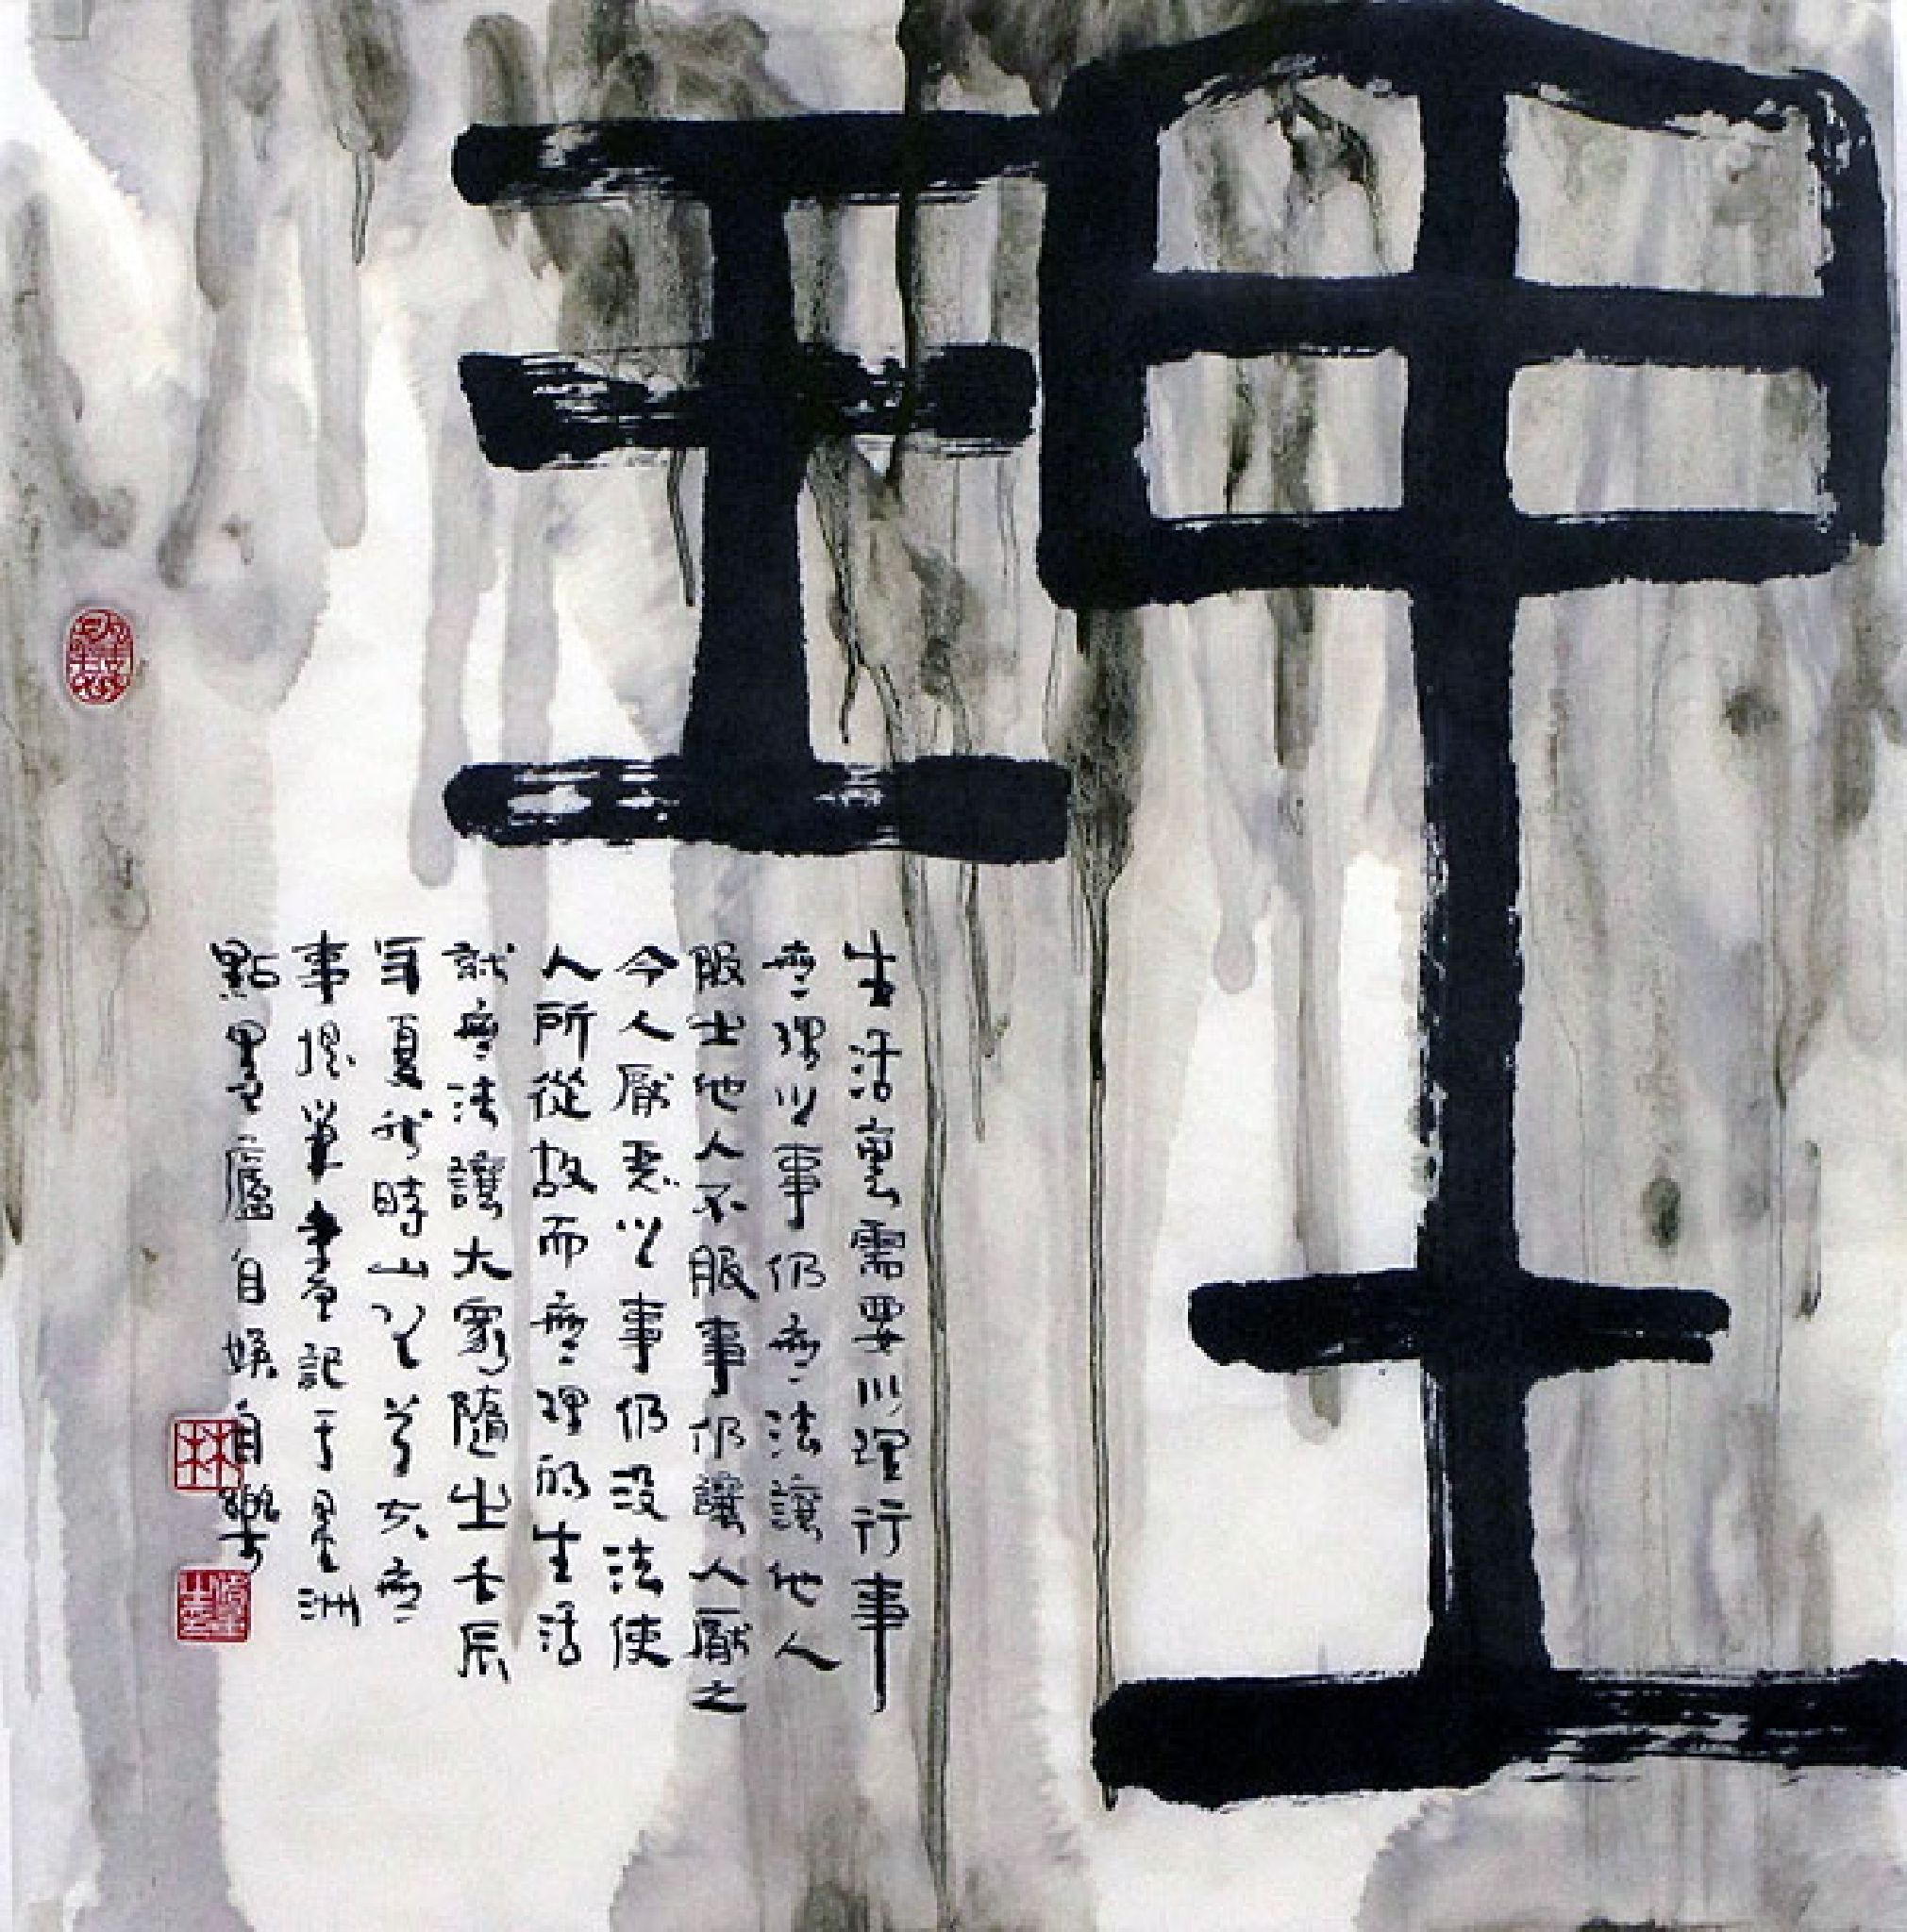 理
生活裏需要以理行事
無理以事仍無法讓他人
服出他人不服事仍讓人厭之
令人厭惡以事仍没法使
人所從故而無理的生活
就無法讓大眾隨出壬辰
年夏我時山
事據筆畫記于墨洲
點墨廬自娛自樂
林